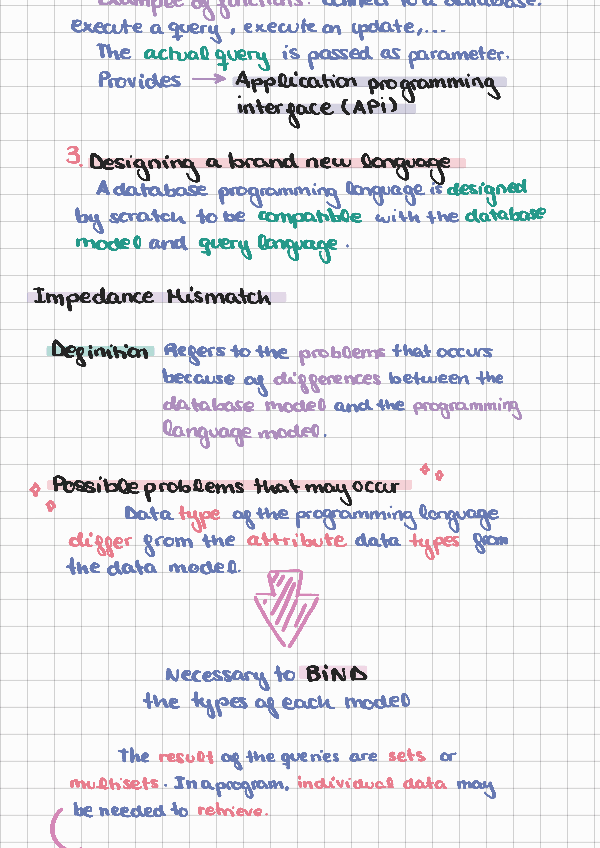 Example of functions: connect to a database.
execute a query, execute an update,...
The actual query is passed as parameter.
Provides → Application programming
interface (API)
3. Designing a brand new language
A database programming language is designed
by scratch to be compatible with the database
model and query language.
Impedance Mismatch
Definition Refers to the problems that occurs
because of differences between the
database model and the programming
language model.
Possible problems that may occur
Data type of the programming language
differ from the attribute data types from
the data model.
Necessary to BIND
the types of each model
The result of the queries are sets or
multisets. In a program, individual data may
be needed to retrieve.